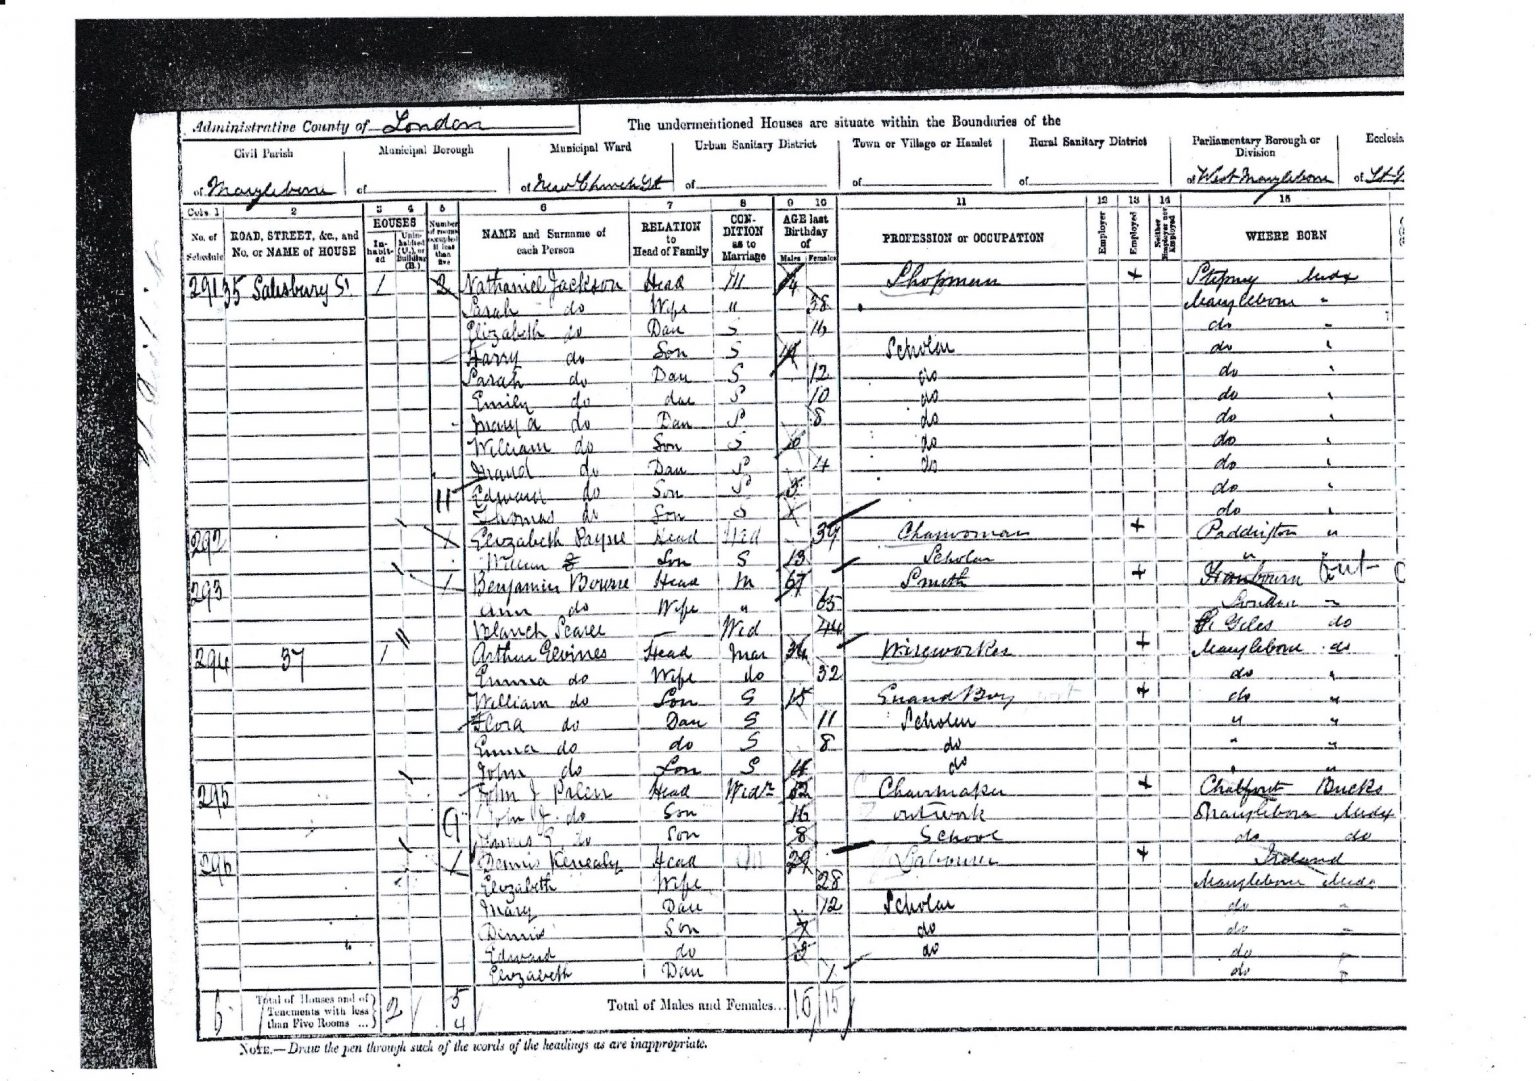 Administrative County of London
The undermentioned Houses are situate within the Boundaries of the
Civil Parish Municipal Borough Municipal Ward Urban Sanitary District Town or Village or Hamlet Rural Sanitary District Parliamentary Borough or Division Ecclesia
of Marylebone of of New Church St of of of of West Marylebone of St
Cols. 1 2 3 4 5 6 7 8 9 10 11 12 13 14 15
No. of Schedule ROAD, STREET, &c., and No. or NAME of HOUSE HOUSES Inhabited Uninhabited (U.), or Building (B.) Number of rooms occupied if less than five NAME and Surname of each Person RELATION to Head of Family CONDITION as to Marriage AGE last Birthday of Males Females PROFESSION or OCCUPATION Employer Employed Neither Employer nor Employed WHERE BORN
291 35 Salisbury St 1 2 Nathaniel Jackson Head M Shopman + Stepney Midx
Sarah do Wife " 38 Marylebone "
Elizabeth do Dau S 16 do "
Harry do Son S 14 Scholar do "
Sarah do Dau S 12 do do "
Emily do dau S 10 do do "
Mary A do Dau S 8 do do "
William do Son S do do "
Maud do Dau S 4 do do "
Edward do Son S 3 do "
Thomas do Son S do "
292 Elizabeth Payne Head Wid 39 Charwoman + Paddington "
William Son S 13 Scholar "
293 1 Benjamin Bourne Head M 67 Smith +
Ann do Wife " 65 London "
Blanch Wid 44 St Giles do
294 37 1 Arthur Head Mar 34 Wireworker + Marylebone do
Emma do Wife do 32 do "
William do Son S 15 Errand Boy + do "
Flora do Dau S 11 Scholar " "
Emma do do S 8 do " "
John do Son S 4 do " "
295 John J Head Widr 52 Chairmaker + Chalfont Bucks
John do Son 16 out work Marylebone Midx
James do Son 8 School do do
296 Dennis Kenealy Head M 29 Labourer + Ireland
Elizabeth Wife 28 Marylebone Midx
Mary Dau 12 Scholar do "
Dennis Son 7 do do "
Edward do 3 do do "
Elizabeth Dau 1 do "
6 Total of Houses and of Tenements with less than Five Rooms ... 2 5 4 Total of Males and Females... 16 15
NOTE.—Draw the pen through such of the words of the headings as are inappropriate.